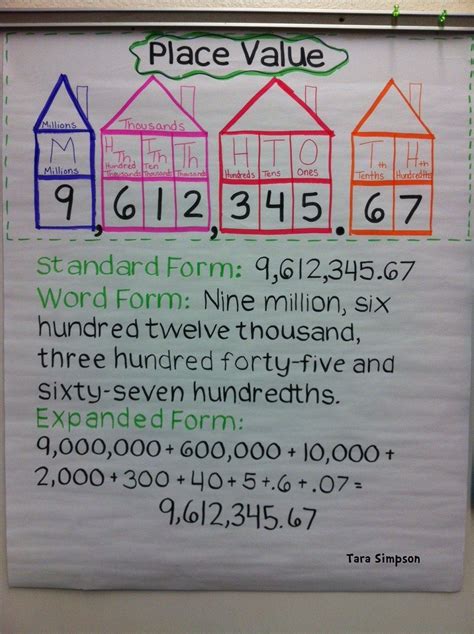 Place Value
Millions
Thousands
M H Th T Th Th H T O T th H th
Millions Hundred Thousands Ten Thousands Thousands Hundreds Tens Ones Tenths Hundredths
9,612,345.67
Standard Form: 9,612,345.67
Word Form: Nine million, six
hundred twelve thousand,
three hundred forty-five and
sixty-seven hundredths.
Expanded Form:
9,000,000+600,000+10,000+
2,000+300+40+5+.6+.07=
9,612,345.67
Tara Simpson